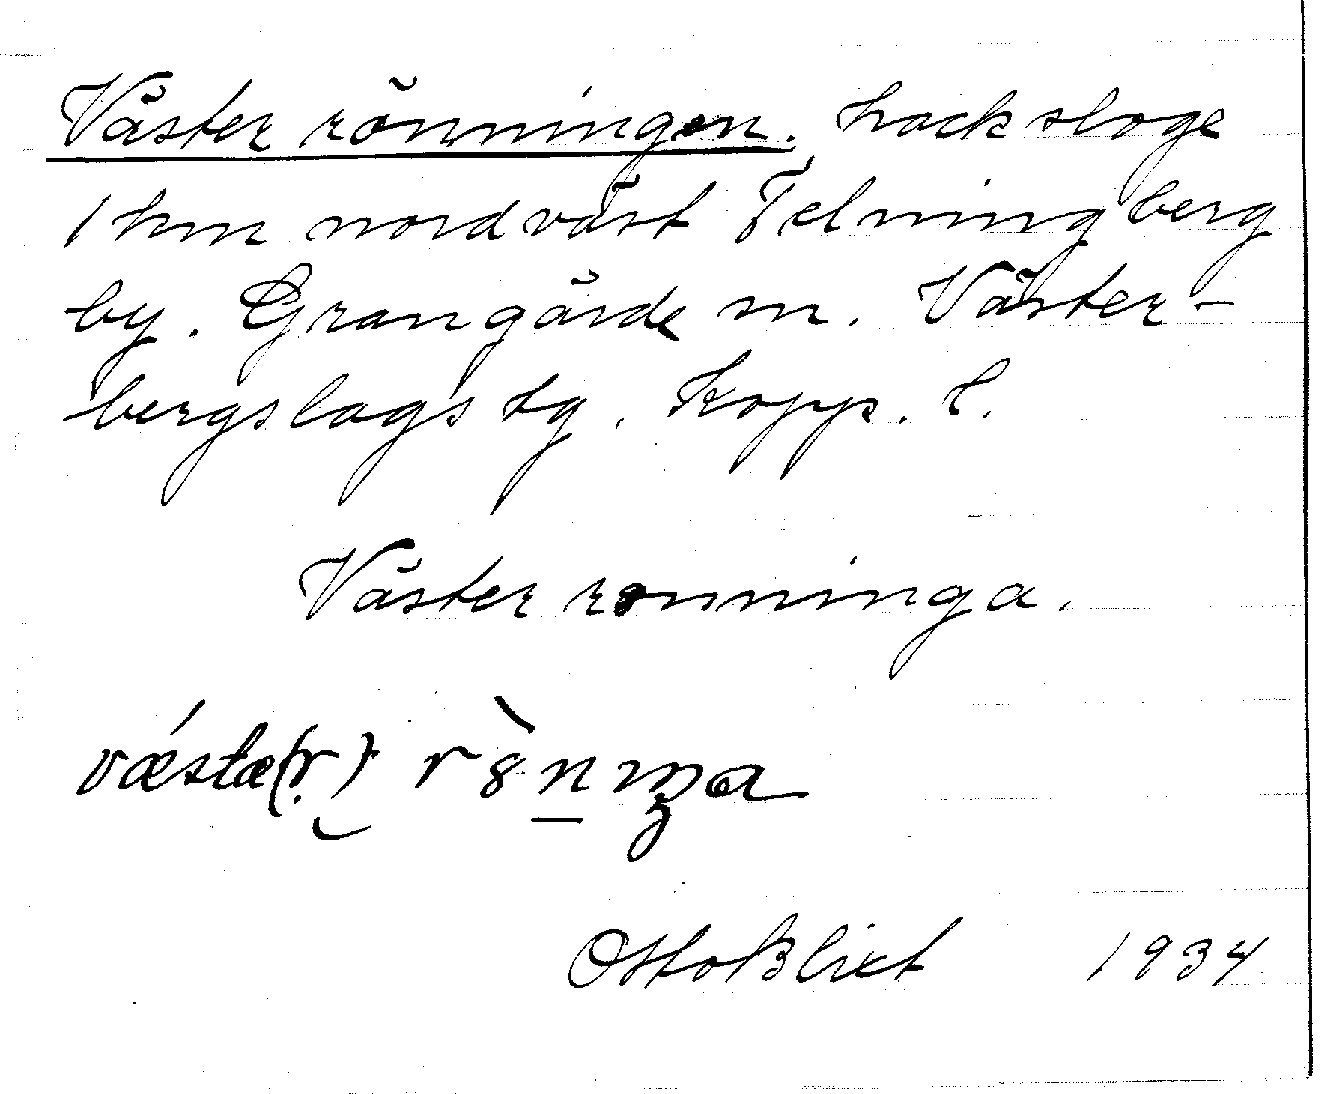 Västerrönningen. hacksloge
1 km nordväst Telningberg
by. Grangärde sn. Väster-
bergslags tg. Kopp. l.
Västerronninga.
Otto Blixt 1934